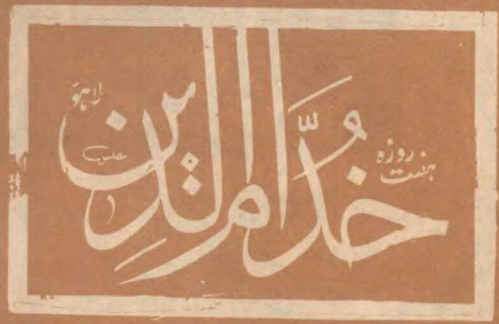 ہفت روزہ
خُدّامُ الدّین
لاہور